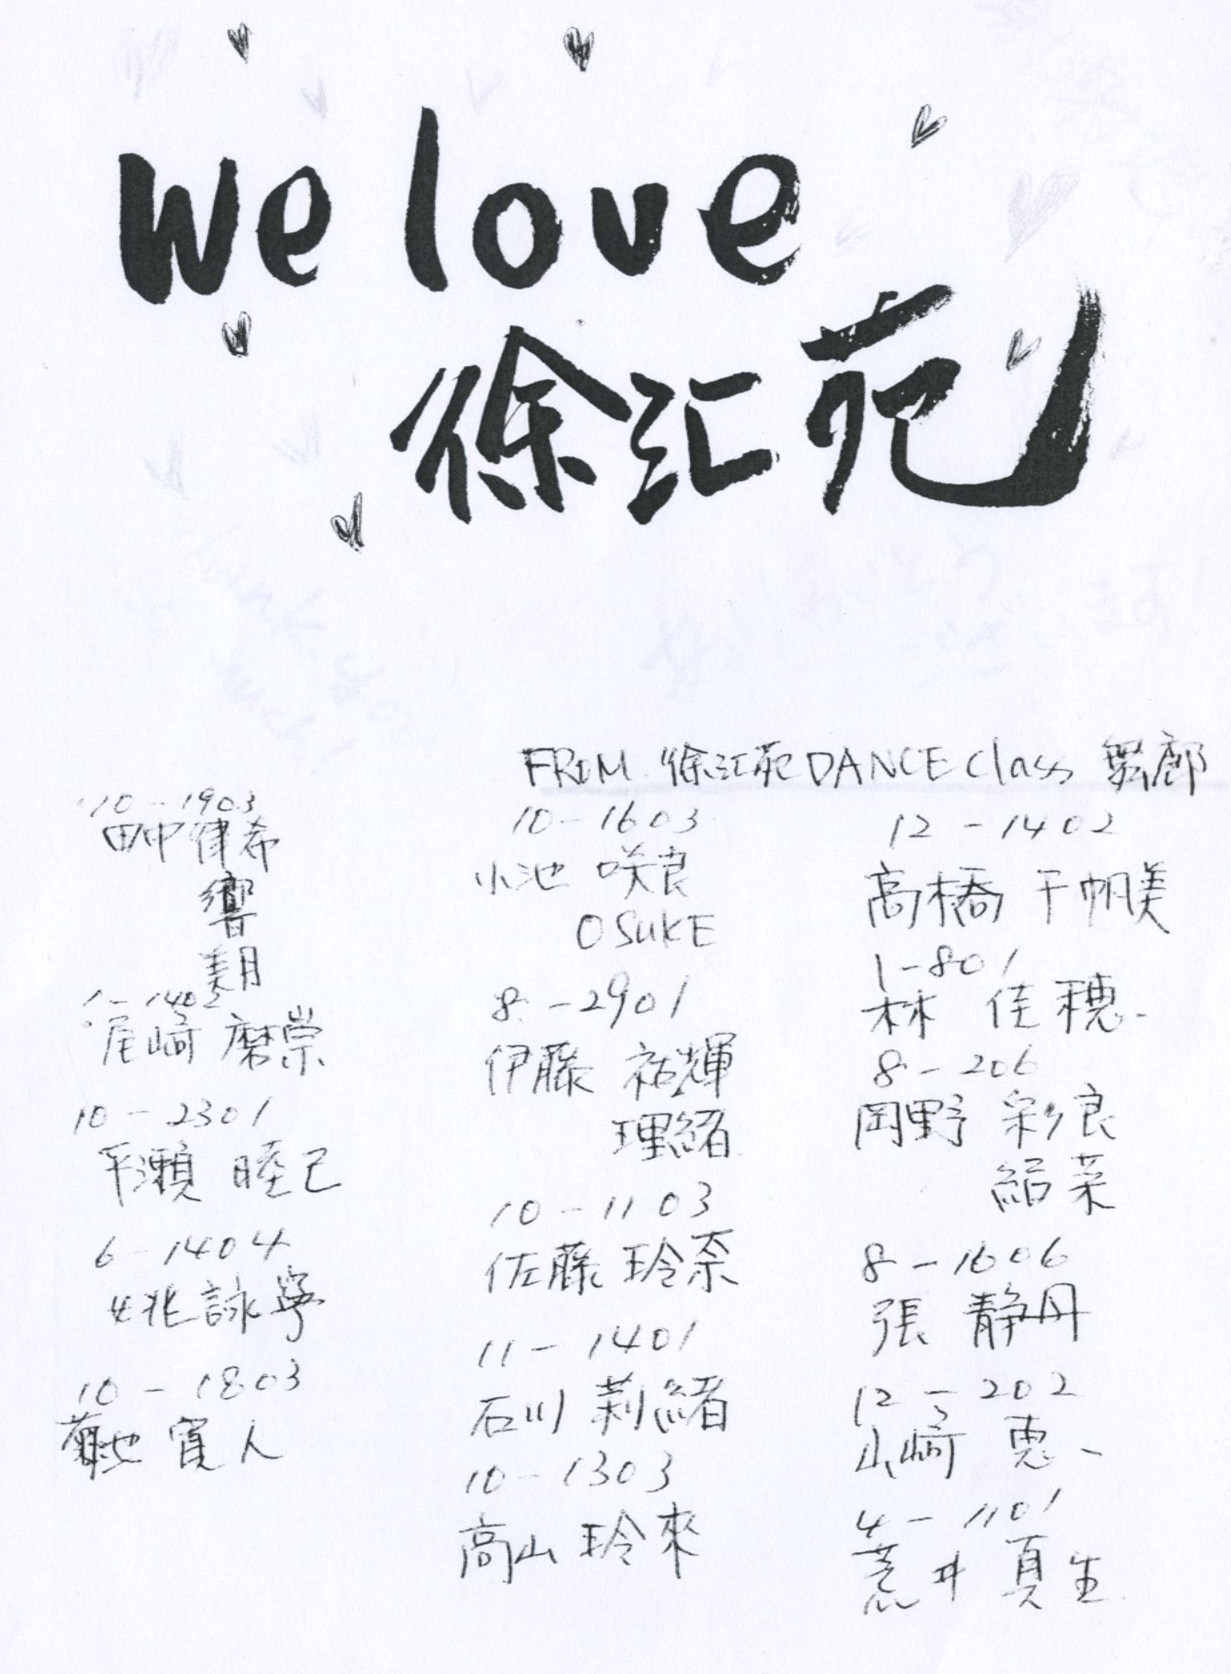 we love
徐汇苑
FROM 徐汇苑 DANCE Class 舞廊
10-1903
田中 律希
響
美月
1-1402
尾崎 磨崇
10-2301
平瀬 睦己
6-1404
姚詠寧
10-1803
菊地 寛人
10-1603
小池 咲良
OSUKE
8-2901
伊藤 祐輝
理緒
10-1103
佐藤 玲奈
11-1401
石川 莉緒
10-1303
高山 玲來
12-1402
高橋 千帆美
1-801
林 佳穂
8-206
岡野 彩良
絽菜
8-1606
張 静丹
12-202
山崎 恵一
4-1101
荒井 真生